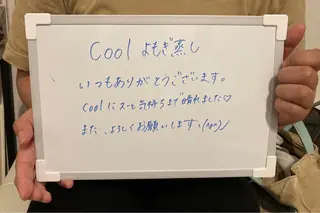 Cool よもぎ蒸し
いつもありがとうございます。
coolにスーと気持ちまで晴れました♡
また、よろしくお願いします、(^^)/